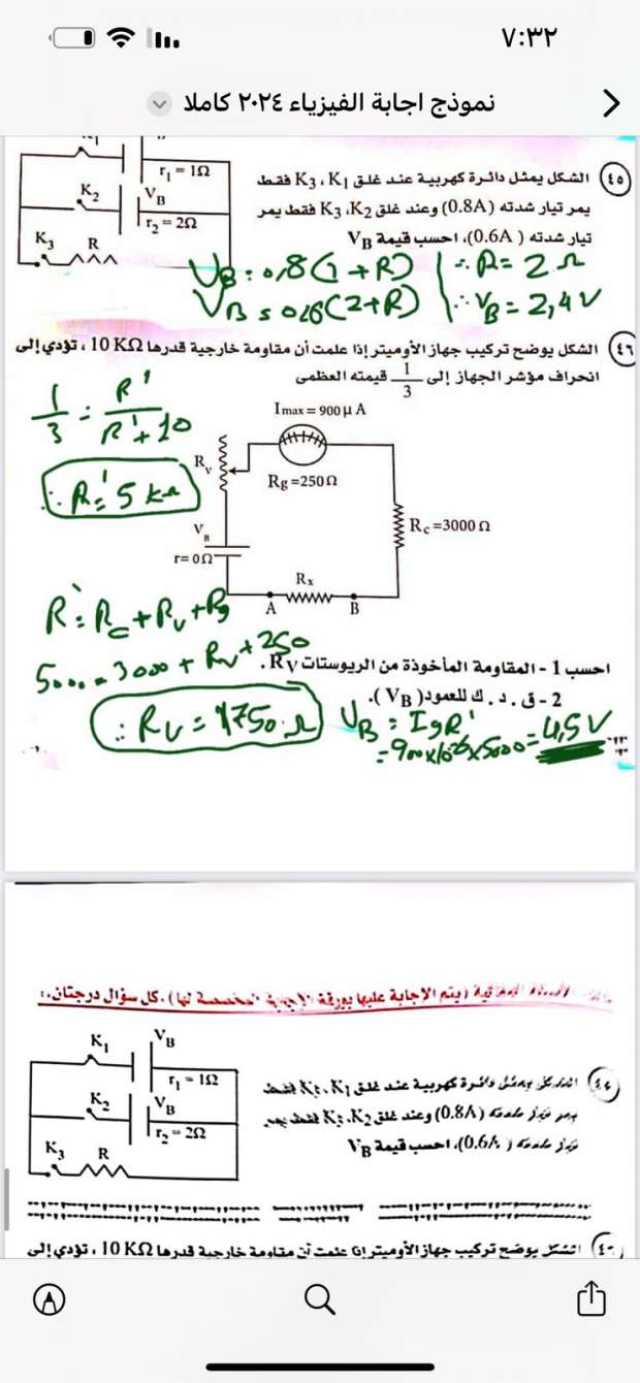 ٧:٣٢
نموذج اجابة الفيزياء ٢٠٢٤ كاملا
r₁ = 1Ω
K₂
V_B
r₂ = 2Ω
K₃ R
(٤٥) الشكل يمثل دائرة كهربية عند غلق K₁ ، K₃ فقط
يمر تيار شدته (0.8A) وعند غلق K₂، K₃ فقط يمر
تيار شدته (0.6A)، احسب قيمة V_B
V_B = 0,8(1+R) ∴ R = 2 Ω
V_B = 0,6(2+R) ∴ V_B = 2,4 V
(٤٦) الشكل يوضح تركيب جهاز الأوميتر إذا علمت أن مقاومة خارجية قدرها 10 KΩ ، تؤدي إلى
انحراف مؤشر الجهاز إلى 1/3 قيمته العظمى
1/3 = R'/(R'+10)
∴ R' = 5 kΩ
I max = 900 μ A
R_v
Rg = 250Ω
R_c = 3000 Ω
V_B
r = 0Ω
Rx
A B
R' = R_c + R_v + R_g
5000 = 3000 + R_v + 250
∴ R_v = 1750 Ω
احسب 1 - المقاومة المأخوذة من الريوستات R_V.
2 - ق . د . ك للعمود (V_B).
V_B = I_g R'
= 900×10⁻⁶×5000 = 4,5 V
(يتم الإجابة عليها بورقة المخصصة لها). كل سؤال درجتان.:
K₁ V_B
r₁ = 1Ω
K₂ V_B
r₂ = 2Ω
K₃ R
دائرة كهربية عند غلق K₁ ، K₃ فقط
(0.8A) وعند غلق K₂، K₃ فقط يمر
(0.6A)، احسب قيمة V_B
الشكل يوضح تركيب جهاز الأوميتر إذا علمت أن مقاومة خارجية قدرها 10 KΩ ، تؤدي إلى